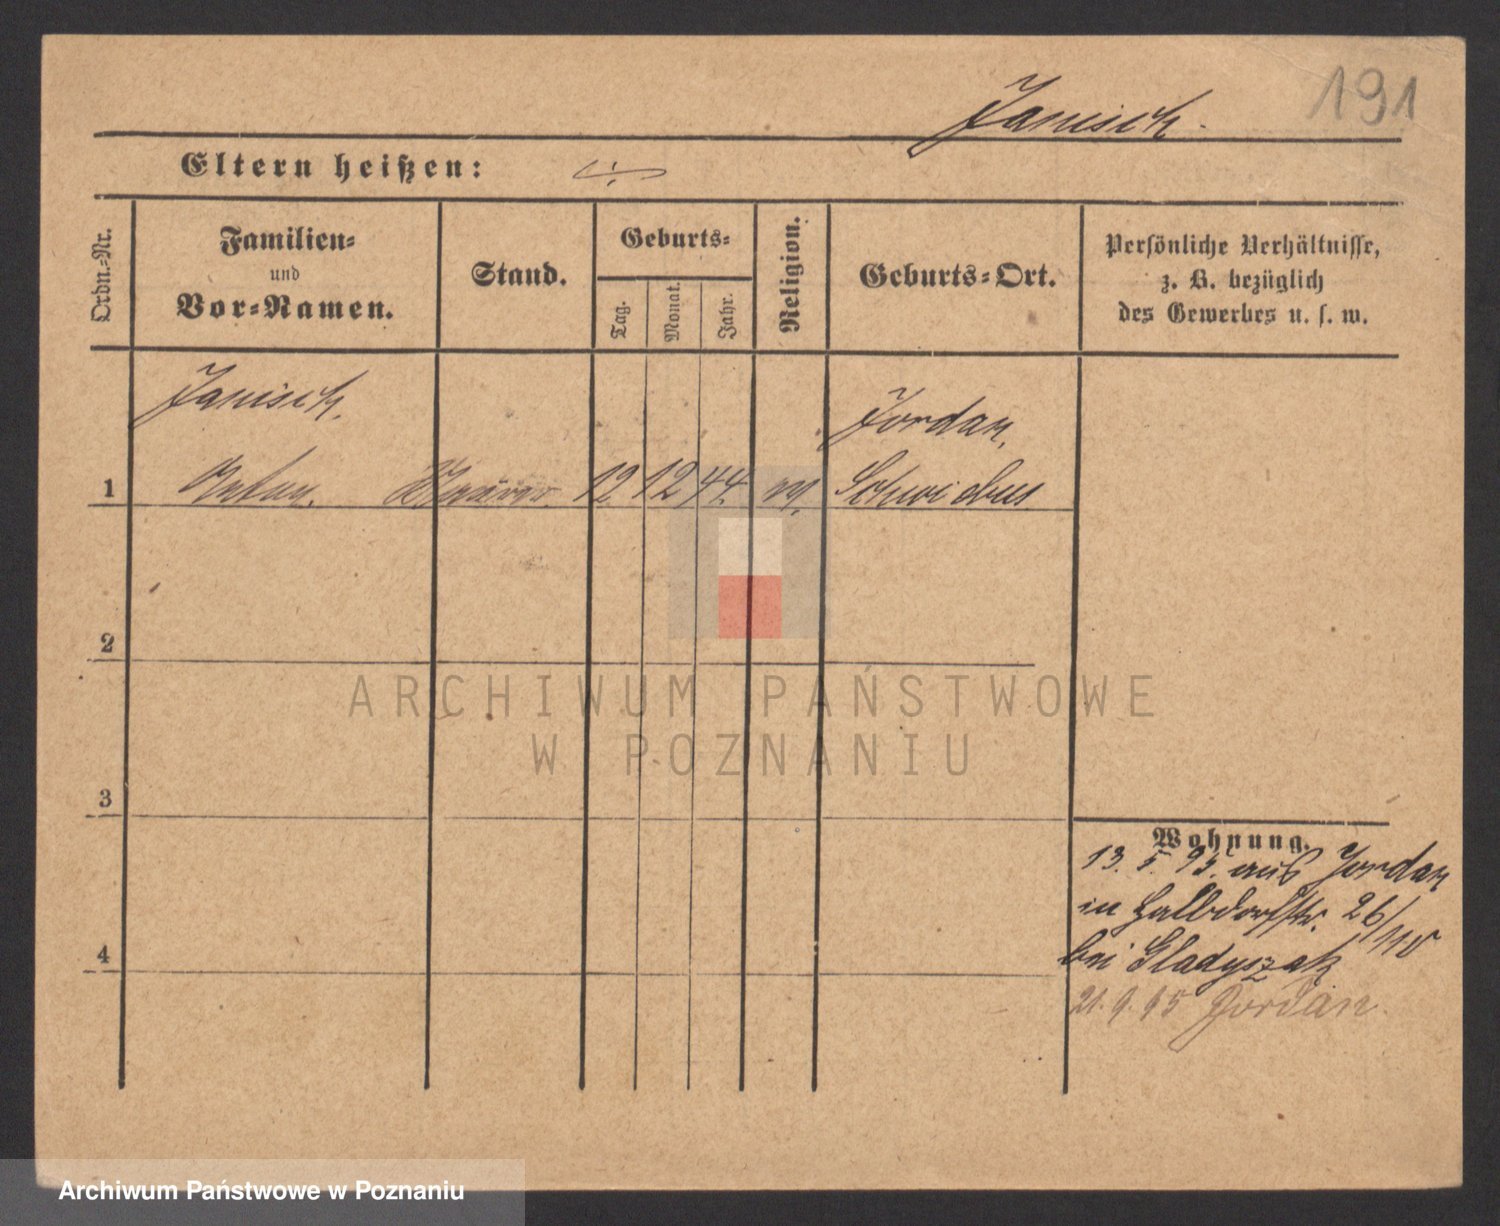 191
Janisch.
Eltern heißen:
Ordn.=Nr.
Familien=
und
Vor=Namen.
Stand.
Geburts=
Tag.
Monat.
Jahr.
Religion.
Geburts=Ort.
Persönliche Verhältnisse,
z. B. bezüglich
des Gewerbes u. s. w.
Janisch.
Jordan,
1 12 12 44. Schwiebus
2
3
4
Wohnung.
13. 5. 95. aus Jordan
in Halbdorfstr. 26/
bei Gladyszak
21. 9. 95 Jordan.
ARCHIWUM PAŃSTWOWE
W POZNANIU
Archiwum Państwowe w Poznaniu